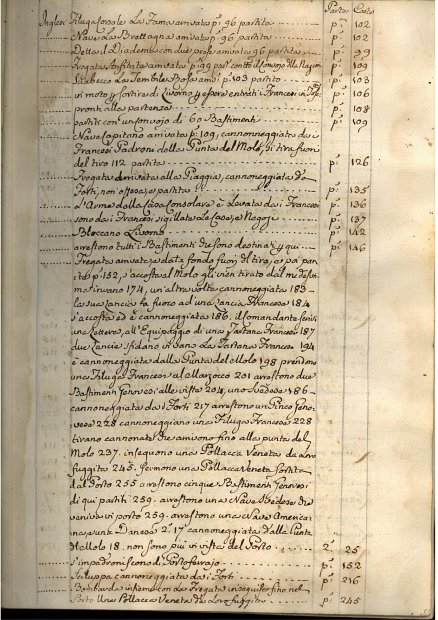 Parta Carte
Inglesi Filuga Corsale La Fama armata pi. 96 partita pi. 102
Nave La Brettagna armata pi. 96 partita pi. 102
Detta il Diadema con due prese armata 96 partita pi. 99
Fregata Anfitrite armata pi. 99 pi. 109
Sciabecco La Temible Bofe arm. pi. 103 partito pi. 103
in moto p. sortire di Livorno p. essere entrati i Francesi in pi. 106
pronti alla partenza pi. 108
partiti con un convojo di 60 Bastimenti pi. 109
Nave Capitano arrivata pi. 109, cannonneggiata da i
Francesi Padroni della Punta del Molo, si tira fuori
del tiro 112 partita pi. 126
Fregata derivata alla Piaggia, cannoneggiata da
Forti, non offesa, e partita pi. 135
L'Arme dalla Casa Consolare è Levata da i Francesi pi. 136
sono da i Francesi sigillate Le Case, e Negozj pi. 137
Bloccano Livorno pi. 142
arrestono tutti i Bastimenti che sono destinati p. qui pi. 146
Fregata arrivata, e data fondo fuori il tiro, e pa pan
ito pi. 152, s'accosta al Molo gli vien tirato dal medesi
mo si invano 174, un'altra volta cannoneggiata 183
La sua Lancia fa fuoco ad una Lancia Francese 184
s'accosta ed è cannoneggiata 186. il Comandante scrive
una Lettera, all'Equipaggio di una Tartana Francese 187
due Lancie sfidano in vano La Tartana Francese 194
è cannoneggiata dalla Punta del Molo 198 prendono
una Filuga Francese al Marzocco 201 arrestono due
Bastimenti Genovesi alle viste 204, uno Svedese 186
cannoneggiata da i Forti 217 arrestono un Pinco Geno
vese 228 cannoneggiano una Filuga Francese 228
tirano cannonate che arrivono fino alla punta del
Molo 237. inseguono una Pollacca Veneta da Loro
fuggita 245. fermono una Pollacca Veneta sortita
dal Porto 255 arrestono cinque Bastimenti Genovesi
di qui partiti 259. arrestono una Nave Svedese che
veniva in porto 259. arrestono una Nave America
na, e una Danese 2. 17 cannoneggiata dalle Punte
del Molo 18. non sono più in vista del Porto 2. 25
s'impadroniscono di Portoferrajo pi. 152
Scialuppa cannoneggiata da i Forti pi. 216
Bombarda insieme con La Fregata inseguito fino nel
Porto Una Pollacca Veneta da Loro fuggita pi. 245